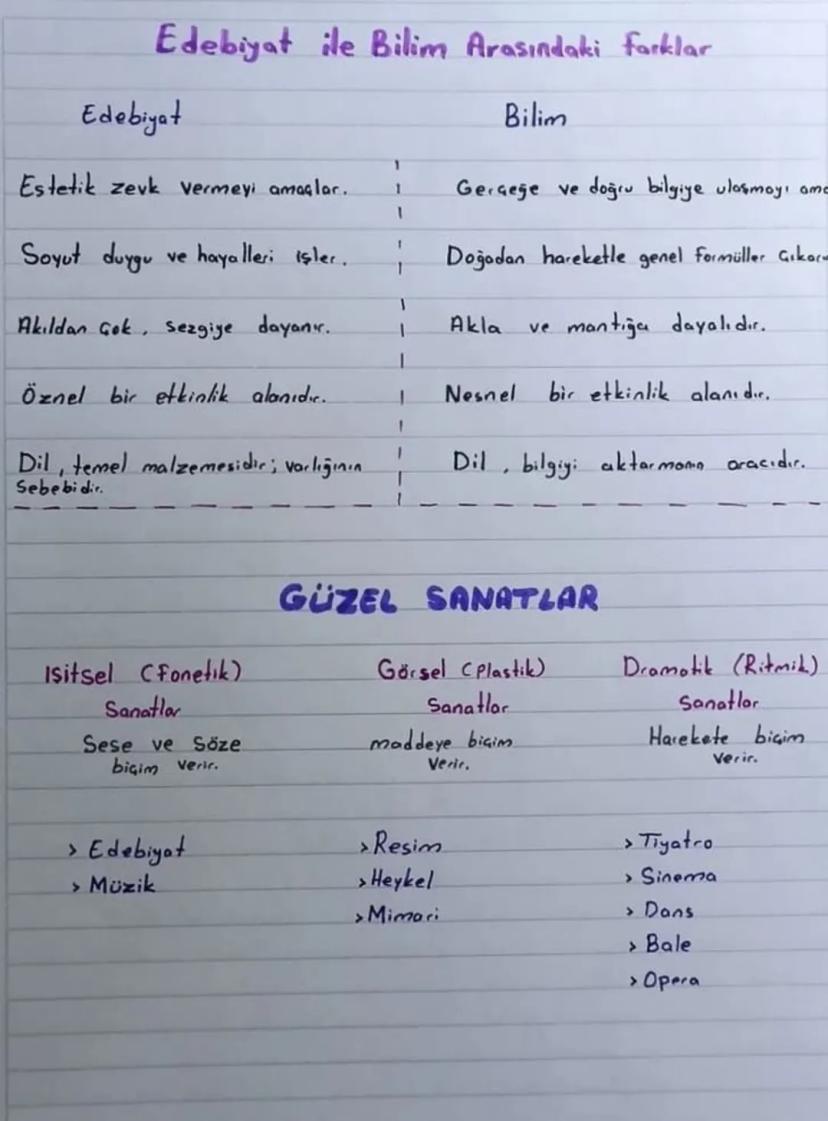 Edebiyat ile Bilim Arasındaki farklar
Edebiyat Bilim
Estetik zevk vermeyi amaçlar. Gerçeğe ve doğru bilgiye ulaşmayı
Soyut duygu ve hayalleri işler. Doğadan hareketle genel formüller
Akıldan çok, sezgiye dayanır. Akla ve mantığa dayalıdır.
Öznel bir etkinlik alanıdır. Nesnel bir etkinlik alanıdır.
Dil, temel malzemesidir; varlığının Dil, bilgiyi aktarmama aracıdır.
Sebebidir.
GÜZEL SANATLAR
Işitsel (fonetik) Görsel (Plastik) Dramatik (Ritmik)
Sanatlar Sanatlar Sanatlar
Sese ve Söze maddeye biçim Harekete biçim
biçim verir. Verir. Verir.
> Edebiyat > Resim > Tiyatro
> Müzik > Heykel > Sinema
> Mimari > Dans
> Bale
> Opera